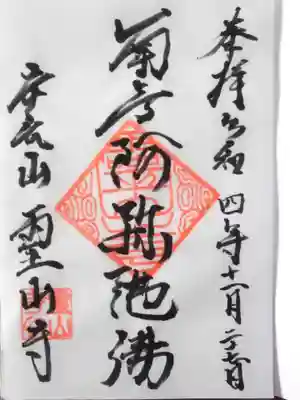 奉拝 令和四年十一月二十七日
南無阿弥陀佛
常在山 霊山寺